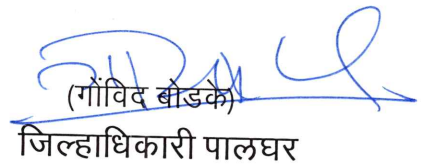 (गोंविद बोडके)
जिल्हाधिकारी पालघर